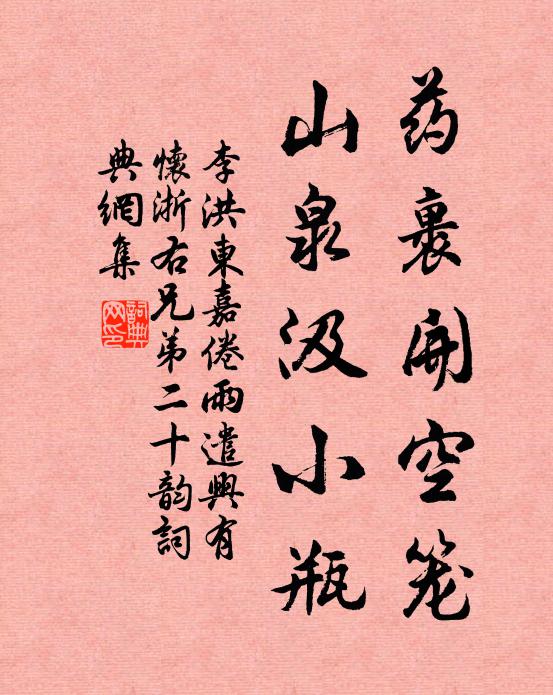 药裹开空笼
山泉汲小瓶
李洪東嘉倦雨遣興有
懷浙右兄弟二十韵詞
典網集
詞典
网印